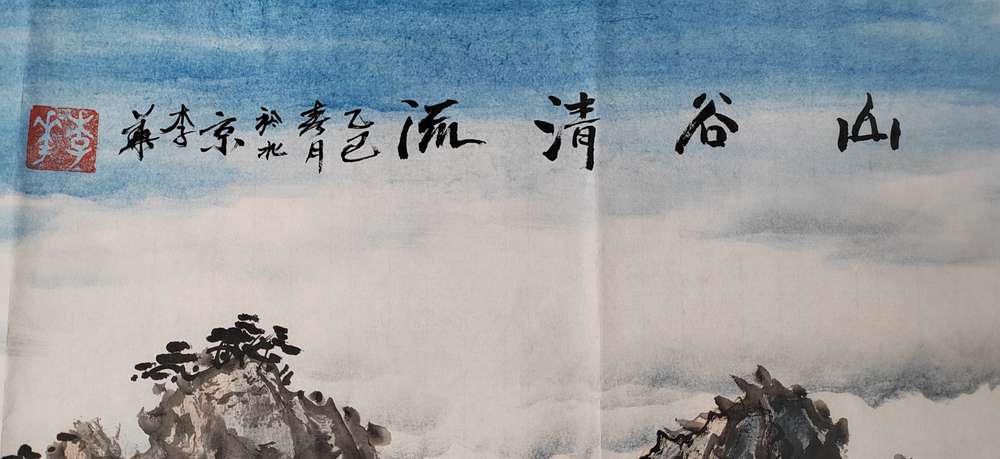 山谷清流 乙巳春月於北京李華
李華